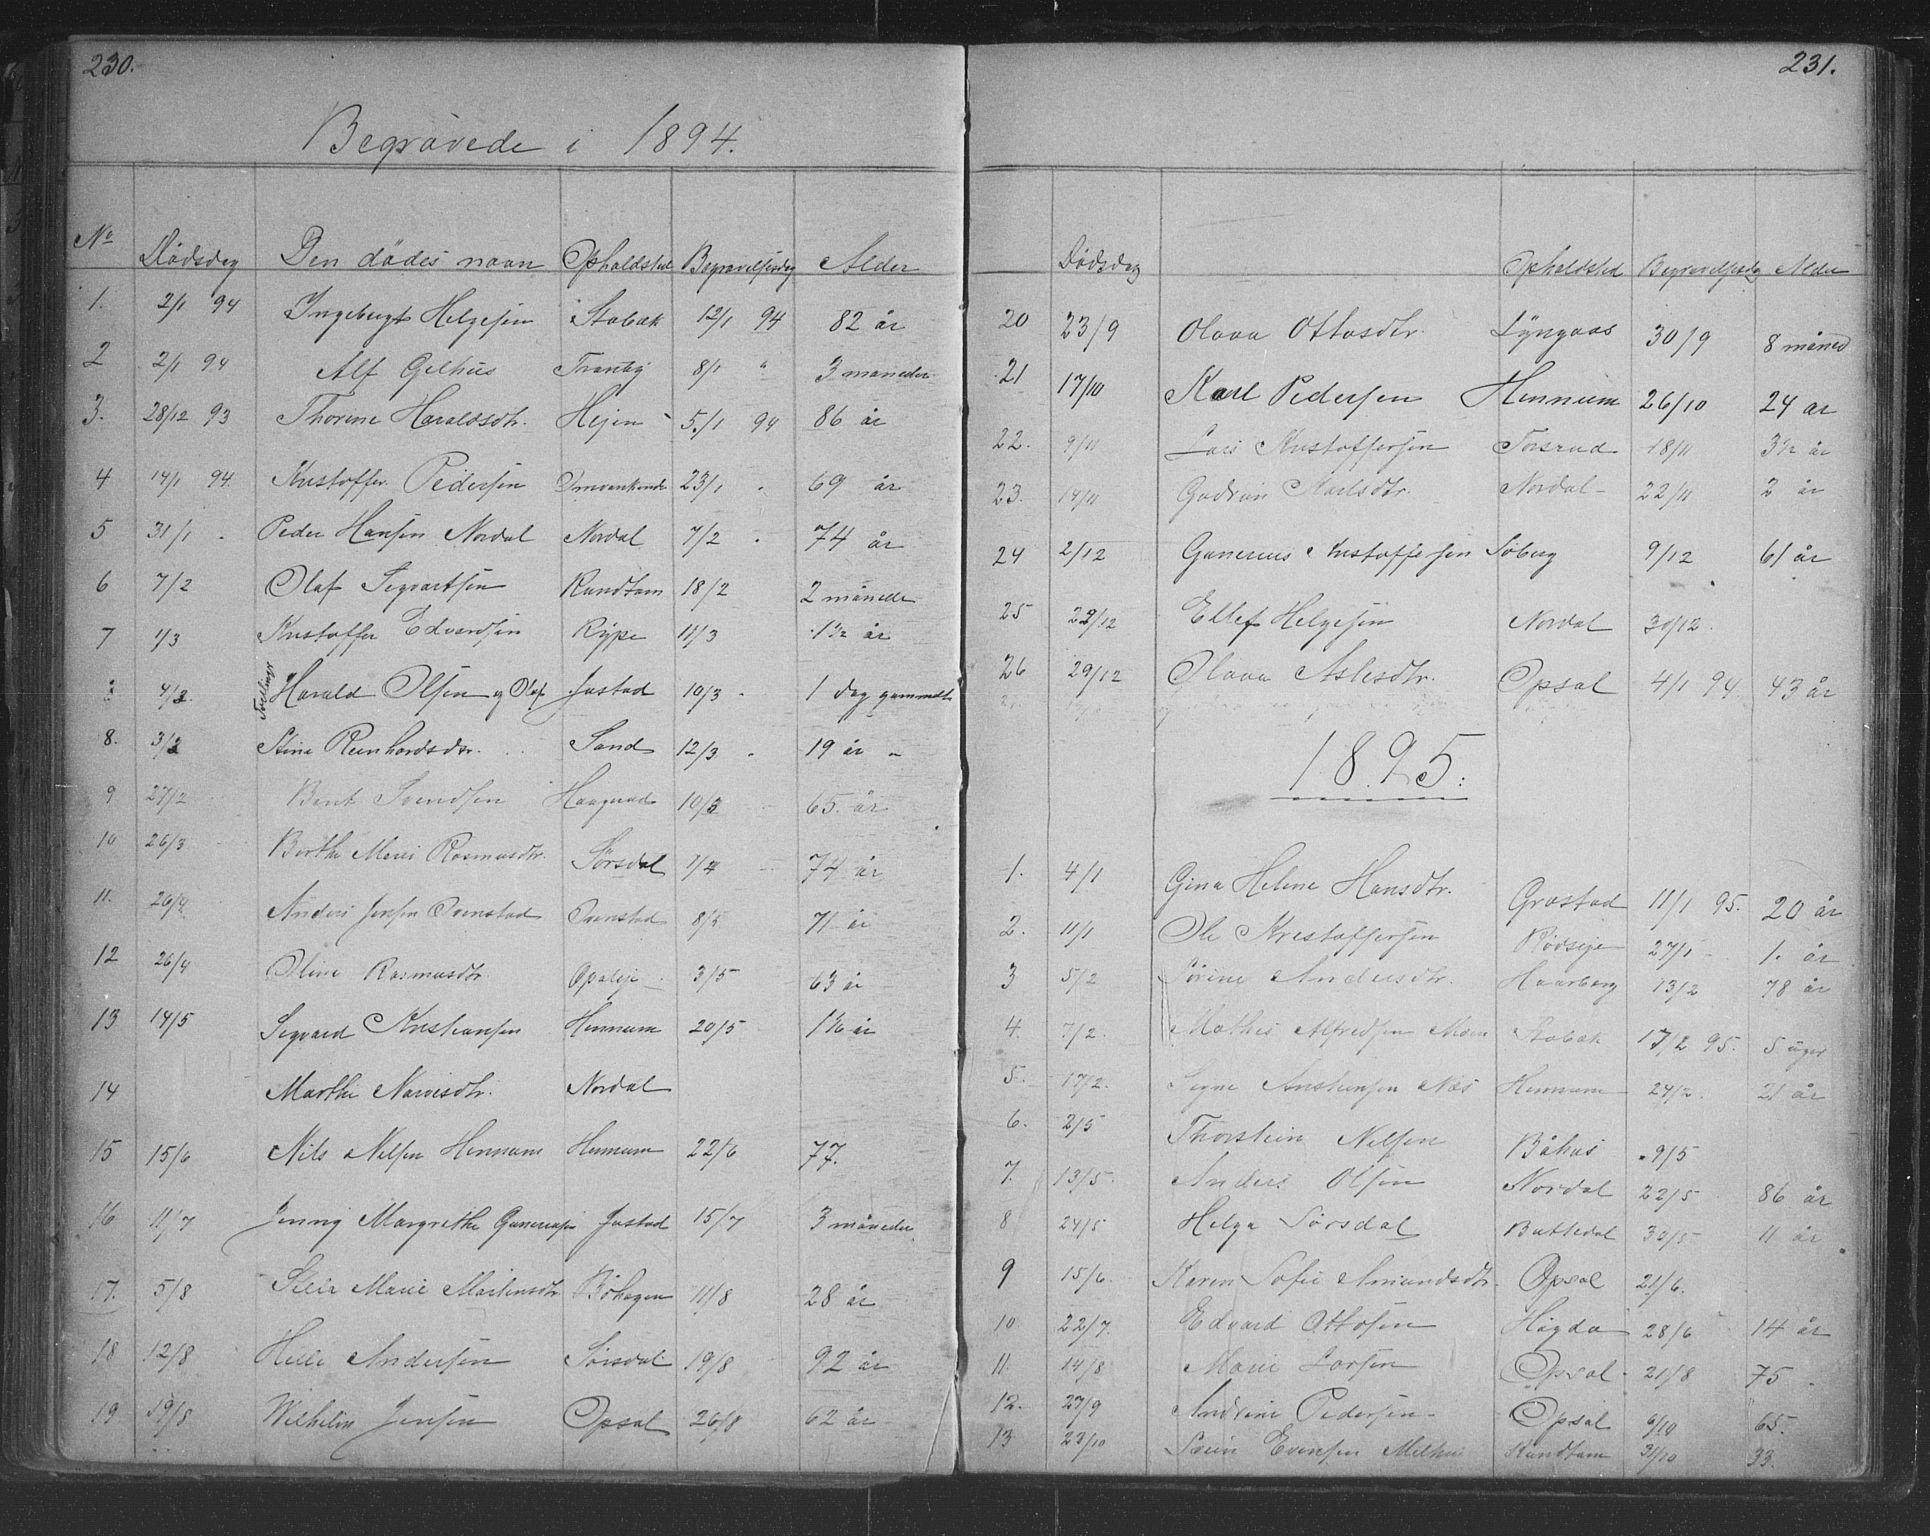 230.
Begravede i 1894.
No Dødsdag Den dødes navn Opholdsted Begravelsesdag Alder
1. 2/1 94 Ingeborgt Helgesen Stabæk 12/1 94 82 år
2 2/1 94 Alf Gelhus Tranby 8/1 " 3 måneder
3. 28/12 93 Thorine Haraldsdtr. Hejen 5/1 94 86 år
4 14/1 94 Kristoffer Pedersen 23/1 69 år
5 31/1 Peder Hansen Nordal Nordal 7/2 74 år
6 7/2 Olaf Segvartsen Kundtom 18/2 2 måneder
7 1/3 Kristoffer Edvardsen Rype 11/3 1 1/2 år
Tvillinge Harald Olsen og Olaf Justad 10/3 1 dag gammelt
8. Stine Reinhardsdtr. Sand 12/3 19 år
9 27/2 Bent Svendsen Haagerud 10/3 65 år
10 26/3 Berthe Marie Rasmusdtr. Sørsdal 1/4 74 år
11. 26/4 Anders Jensen Ovenstad Ovenstad 8/5 71 år
12 26/4 Oline Rasmusdtr. Opsaleje 3/5 63 år
13 14/5 Segvard Kristiansen Hennum 20/5 år
14 Marthe Narvesdtr. Nordal
15 15/6 Nils Nelsen Hennum Hennum 22/6 77.
16 11/7 Jenny Margrethe Gunerusen Justad 15/7 3 måneder
17. 5/8 Marie Martinsdtr. Bøhagen 11/8 28 år
18 12/8 Helle Andersen Sørsdal 19/8 92 år
19 19/8 Wilhelm Jensen Opsal 26/8 62 år
231.
Dødsdag Opholdsted Begravelsesdag Alder
20 23/9 Olava Ottosdtr. Lyngaas 30/9 8 måned
21 17/10 Karl Pedersen Hennum 26/10 24 år
22. 9/11 Lars Kristoffersen Torsrud 18/11 3 1/2 år
23. 14/11 Gudrun Karlsdtr. Nordal 22/11 2 år
24 2/12 Gunerius Kristoffersen Søberg 9/12 61 år
25 22/12 Ellef Helgesen Nordal 30/12.
26 29/12 Olava Aslesdtr. Opsal 4/1 94 43 år
1895.
1. 4/1 Gina Helene Hansdtr. Grøstad 11/1 95. 20 år
2. 11/1 Ole Kristoffersen Rødseje 27/1 1. år
3 5/2 Sørine Andersdtr. Haarberg 13/2 78 år
4. 7/2 Mathis Alfredsen Moen Stabæk 17/2 95. 5 uger
5. 17/2. Segne Anstensen Næs Hennum 24/2. 21 år
6. 2/5 Thorstein Nelsen Båhus 9/5
7. 13/5 Anders Olsen Nordal 22/5 86 år
8 24/5 Helga Sørsdal Buttedal 30/5 11 år
9 15/6 Karen Sofie Amundsdtr. Opsal 21/6.
10. 22/7. Edvard Ottosen Høgda 28/6 14 år
11. 14/8 Marie Larsen Opsal 21/8 75
12. 27/9 Andrine Pedersen Opsal 6/10 65.
13 23/10 Evensen Kundtom 31/10 33.